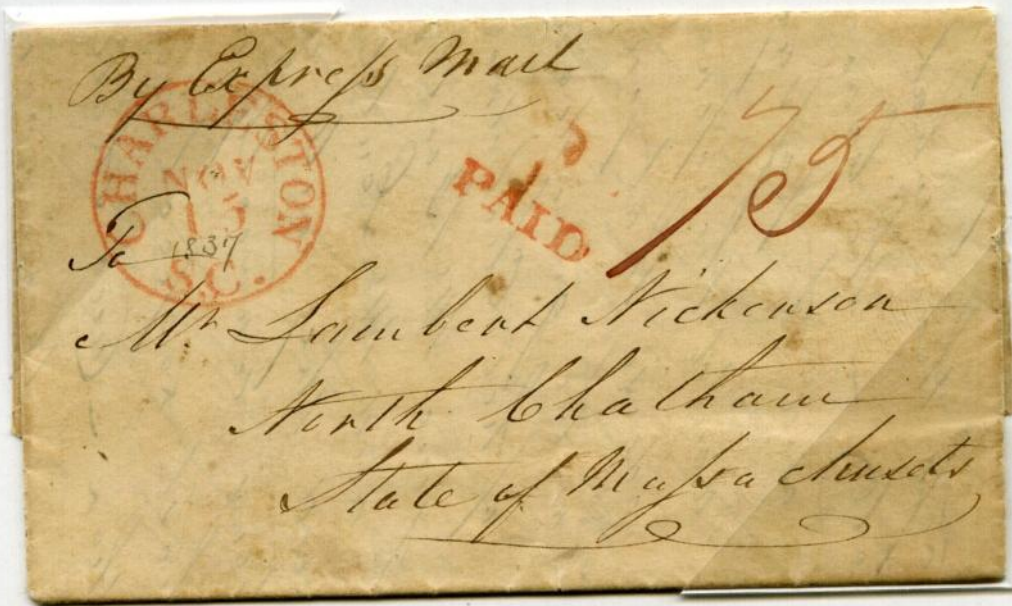 By Express Mail
CHARLESTON
NOV
15
S.C.
PAID
75
To
1837
Mr Lambert Nickerson
North Chatham
State of Massachusetts